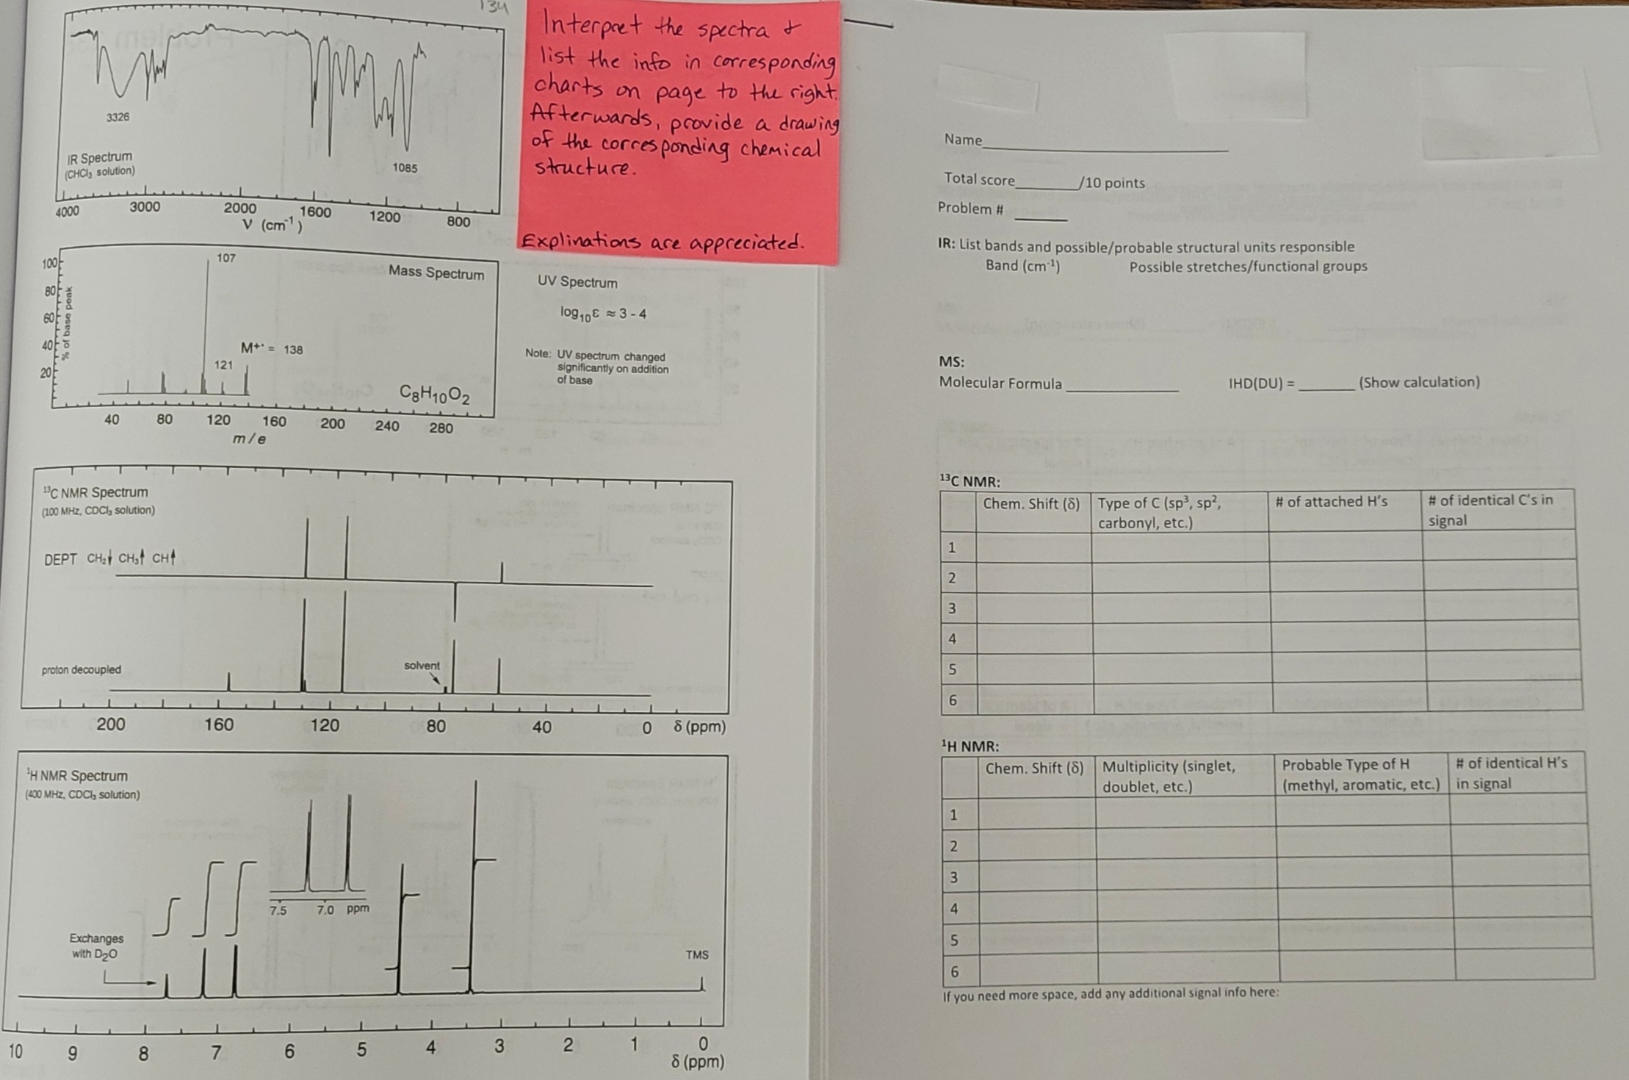 134
3326
IR Spectrum
(CHCl₃ solution)
1085
4000 3000 2000 1600 1200 800
V (cm⁻¹)
Interpret the spectra &
list the info in corresponding
charts on page to the right.
Afterwards, provide a drawing
of the corresponding chemical
structure.
Explinations are appreciated.
100
80
60
40
20
% of base peak
107
Mass Spectrum
M⁺· = 138
121
C₈H₁₀O₂
40 80 120 160 200 240 280
m/e
UV Spectrum
log₁₀ε ≈ 3 - 4
Note: UV spectrum changed
significantly on addition
of base
¹³C NMR Spectrum
(100 MHz, CDCl₃ solution)
DEPT CH₂↓ CH₃↑ CH↑
proton decoupled
solvent
200 160 120 80 40 0 δ (ppm)
¹H NMR Spectrum
(400 MHz, CDCl₃ solution)
7.5 7.0 ppm
Exchanges
with D₂O
TMS
10 9 8 7 6 5 4 3 2 1 0
δ (ppm)
Name
Total score /10 points
Problem #
IR: List bands and possible/probable structural units responsible
Band (cm⁻¹) Possible stretches/functional groups
MS:
Molecular Formula IHD(DU) = (Show calculation)
¹³C NMR:
Chem. Shift (δ) Type of C (sp³, sp², # of attached H's # of identical C's in
carbonyl, etc.) signal
1
2
3
4
5
6
¹H NMR:
Chem. Shift (δ) Multiplicity (singlet, Probable Type of H # of identical H's
doublet, etc.) (methyl, aromatic, etc.) in signal
1
2
3
4
5
6
If you need more space, add any additional signal info here: